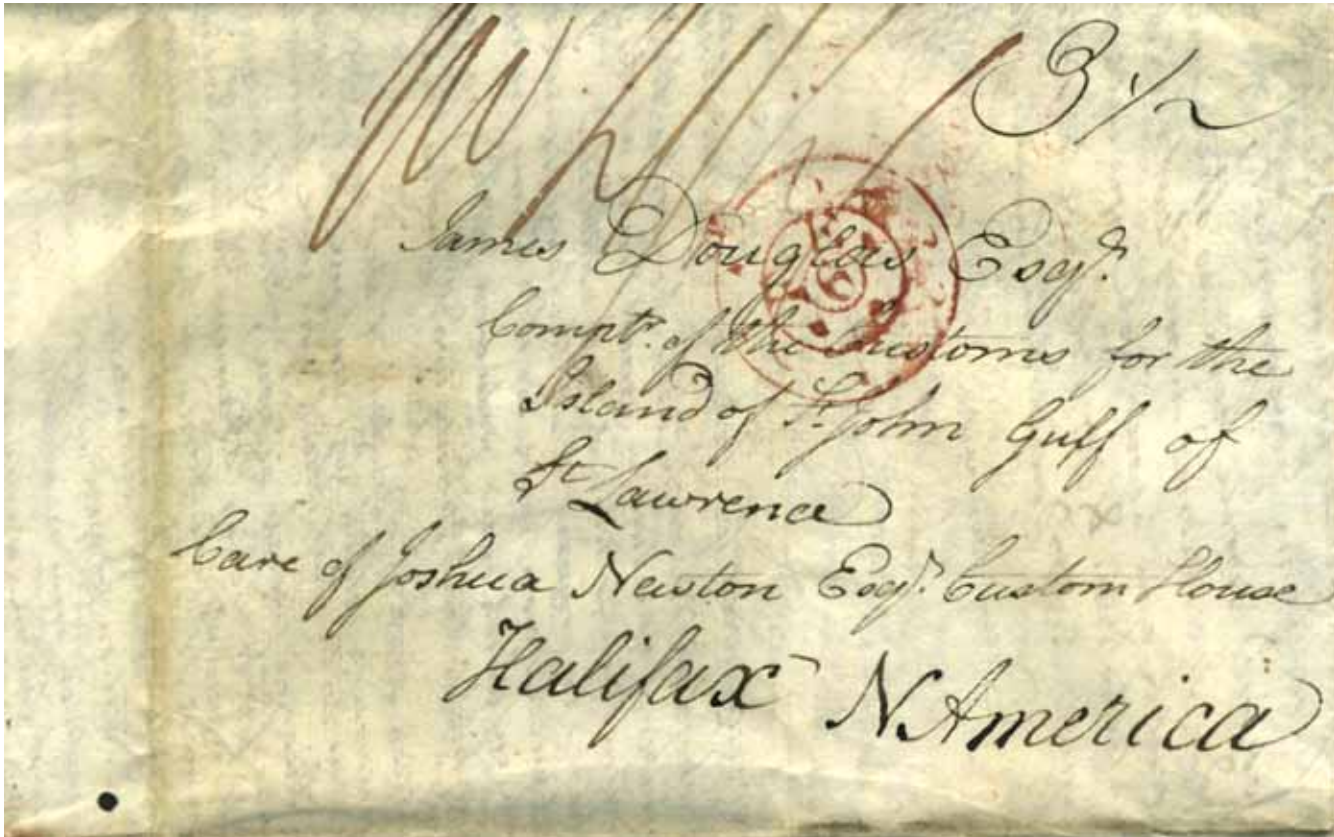 3 1/2
James Douglas Esqr.
Comptr. of the Customs for the
Island of St. John Gulf of
St Lawrence
Care of Joshua Newton Esqr. Custom House
Halifax N. America